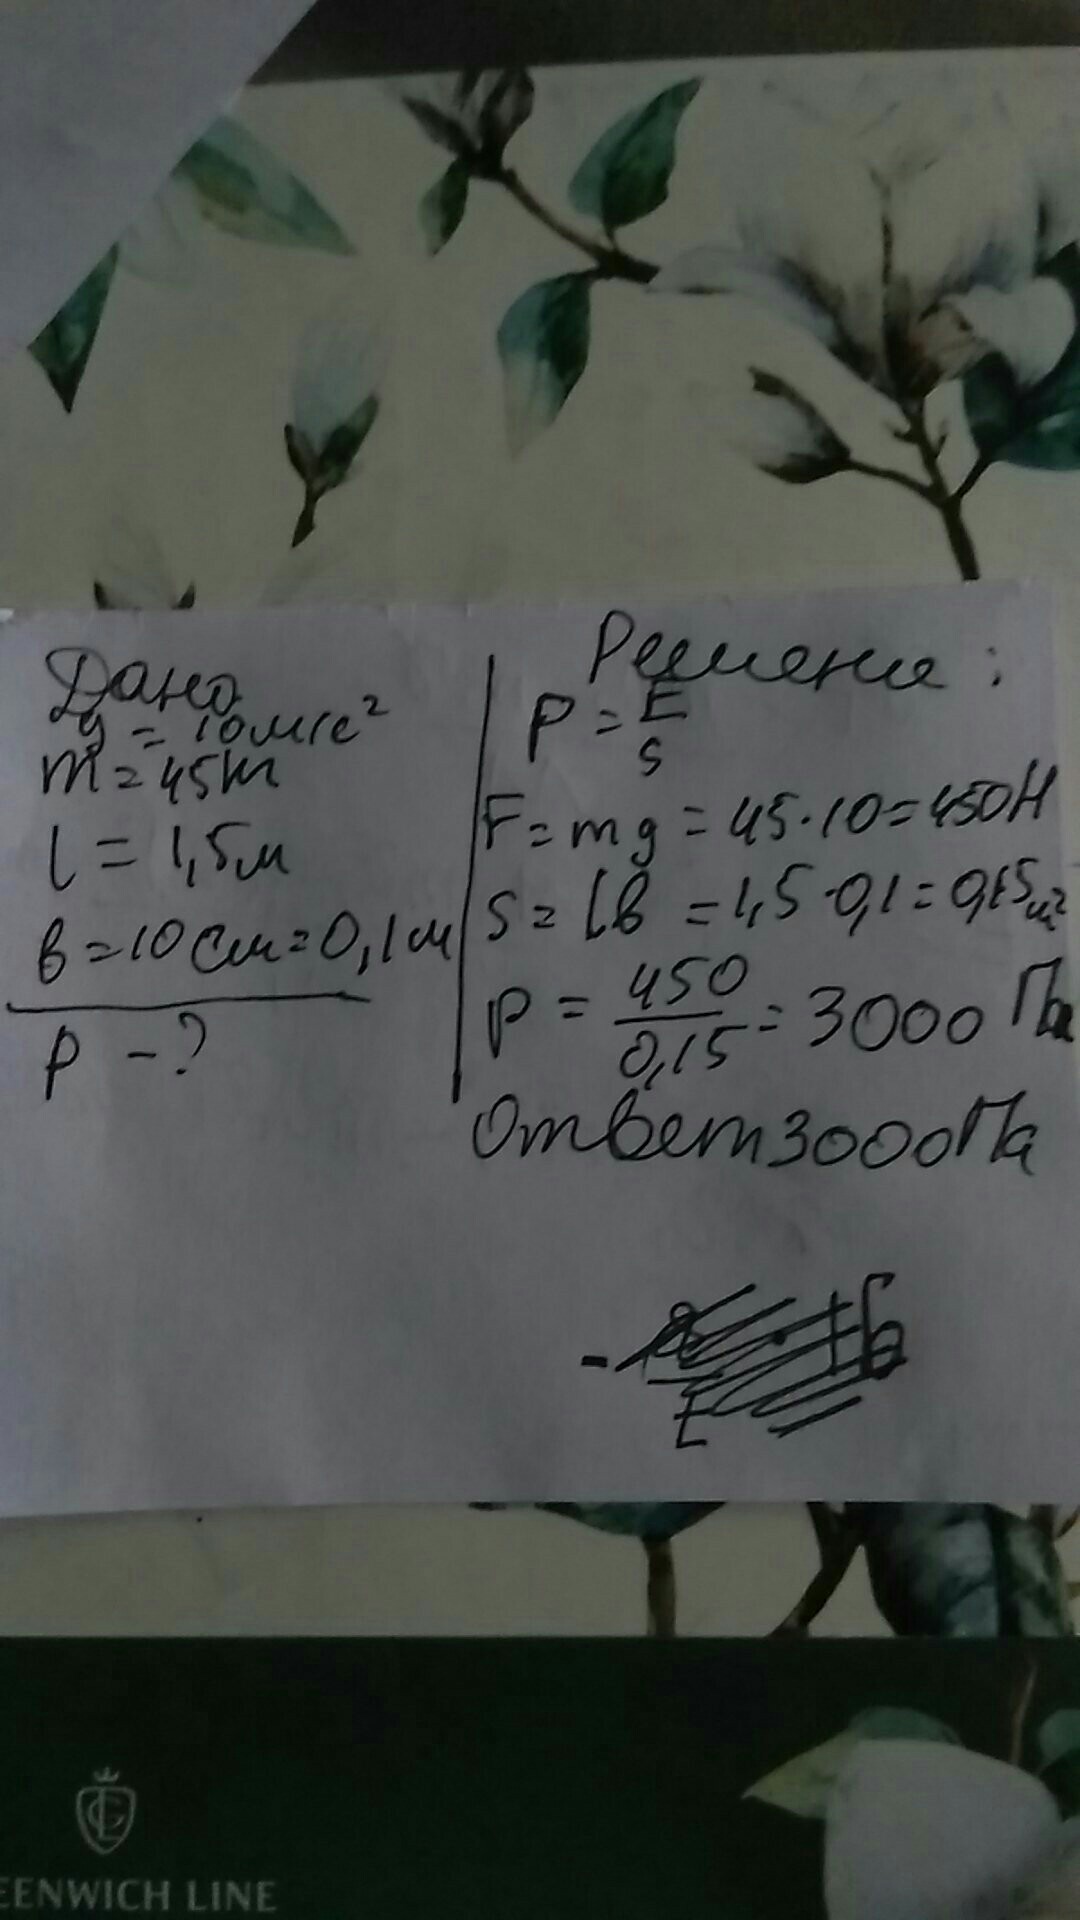 Дано
g = 10 м/с²
m = 45кг
l = 1,5м
в = 10 см = 0,1м
P - ?
Решение :
P = F/S
F = mg = 45·10 = 450Н
S = lв = 1,5·0,1 = 0,15м²
P = 450/0,15 = 3000 Па
Ответ 3000Па
GL
EENWICH LINE